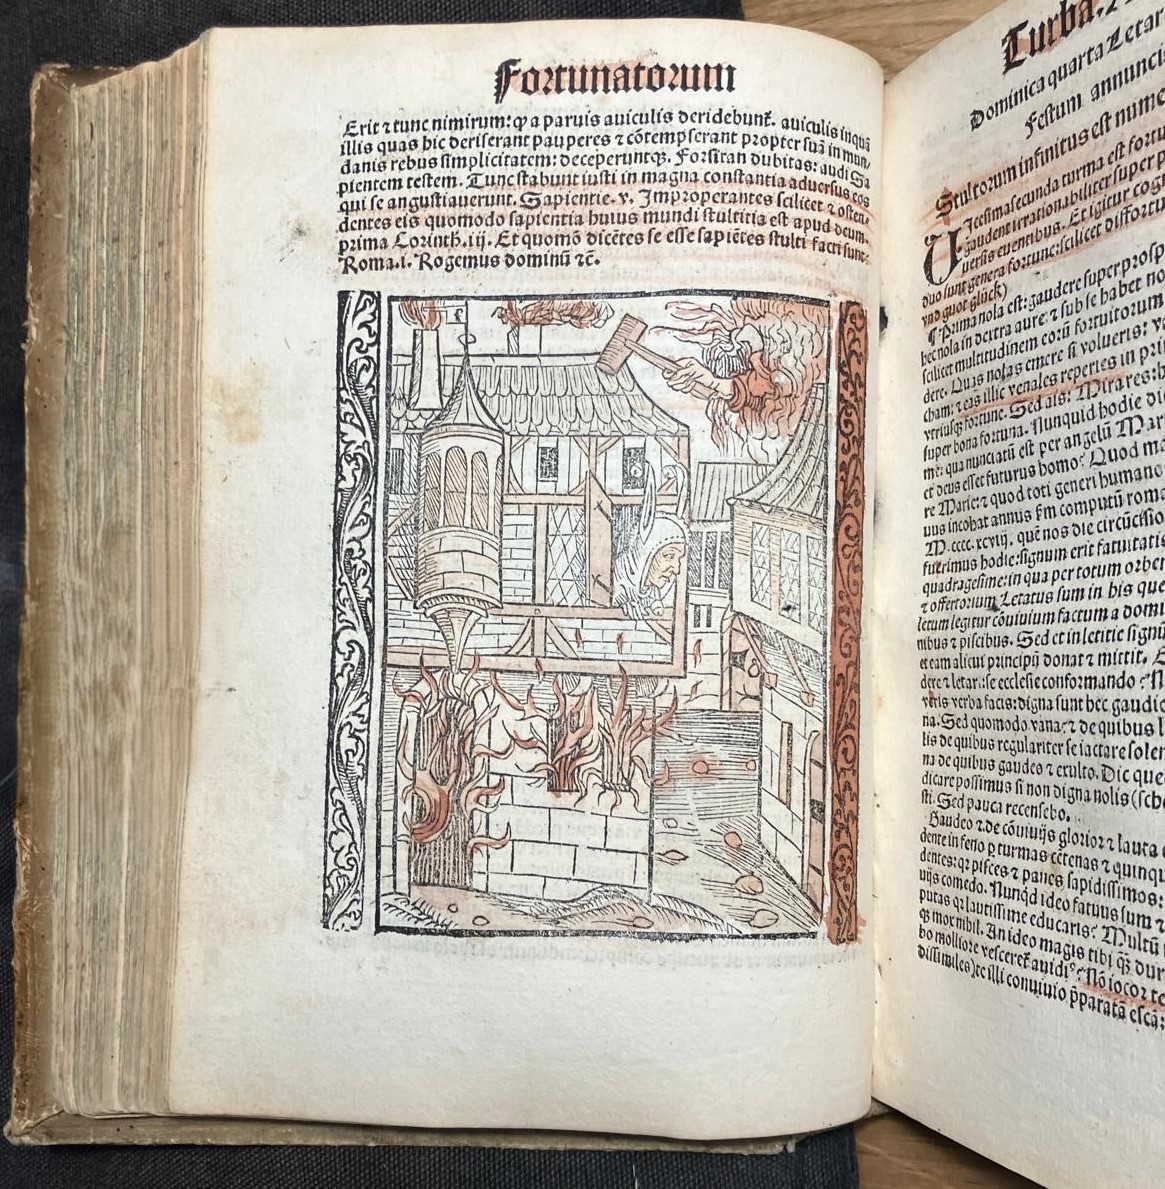 Fortunatorum
Erit ⁊ tunc nimirum: ꝙ a paruis auiculis deridebunt᷒. auiculis inquã
illis quas hic deriserant pauperes ⁊ cõtempserant propter suã in mun/
danis rebus simplicitatem: deceperuntqꝫ. Forsitan dubitas: audi Sa
pientem testem. Tunc stabunt iusti in magna constantia aduersus eos
qui se angustiauerunt. Sapientie. v. Improperantes scilicet ⁊ osten/
dentes eis quomodo sapientia huius mundi stultitia est apud deum.
prima Corinth. iij. Et quomõ dicẽtes se esse sapiẽtes stulti facti sunt:
Roma. i. Rogemus dominũ ⁊c̃.
Turba.
Dominica quarta Letar
Festum annuncia
Stultorum infinitus est nume
Uicesima secunda turma est fortu
gaudent irrationabiliter super p
uersis euentibus. Et igitur cog
duo sunt genera fortune: scilicet
vnd guot glück)
¶ Prima nola est: gaudere super prosp
hec nola in dextra aure: ⁊ sub se habet no
scilicet multitudinem eorũ fortuitorum
dere. Quas nolas emere si volueris: v
cham: ⁊ eas illic venales reperies in pri
vtriusqꝫ fortune. Sed ais: Mirares: h
super bona fortuna. Nunquid hodie di
me: qua nunciatũ est per angelũ Mar
et deus esset futurus homo? Quod m
re Marie: ⁊ quod toti generi humano
uus incohat annus
M.cccc.xcviij. quẽ nos die circũcisio
fuerimus hodie: signum erit fatuitatis
quadragesime: in qua per totum orbem
⁊ offertorium Letatus sum in his que
letum legitur cõuiuium factum a domi
nibus ⁊ piscibus. Sed et in letitie signũ
et eam alicui principũ donat ⁊ mittit. E
dere ⁊ letari: se ecclesie conformando
veris verba facis: digna sunt hec gaudi
na. Sed quomodo vana: ⁊ de quibus
lis de quibus regulariter se iactare solen
na de quibus gaudes ⁊ exulto. Dic que
dicare possimus si non digna nolis (sche
sti. Sed pauca recensebo.
Gaudeo ⁊ de cõuiuijs glorior ⁊ lauta
dente in feno p turmas cẽtenas ⁊ quinqu
dentes: qꝛ pisces ⁊ panes sapidissimos:
uijs comedo. Nunqd ideo fatuus sum
putas qꝛ lautissime educaris? Multũ
mor nihil. An ideo magis tibi qꝫ dur
bo molliore vesceret᷒ auidiꝰ? Nõ iocor te
dissimiles) te illi conuiuio p̃paratã escã: